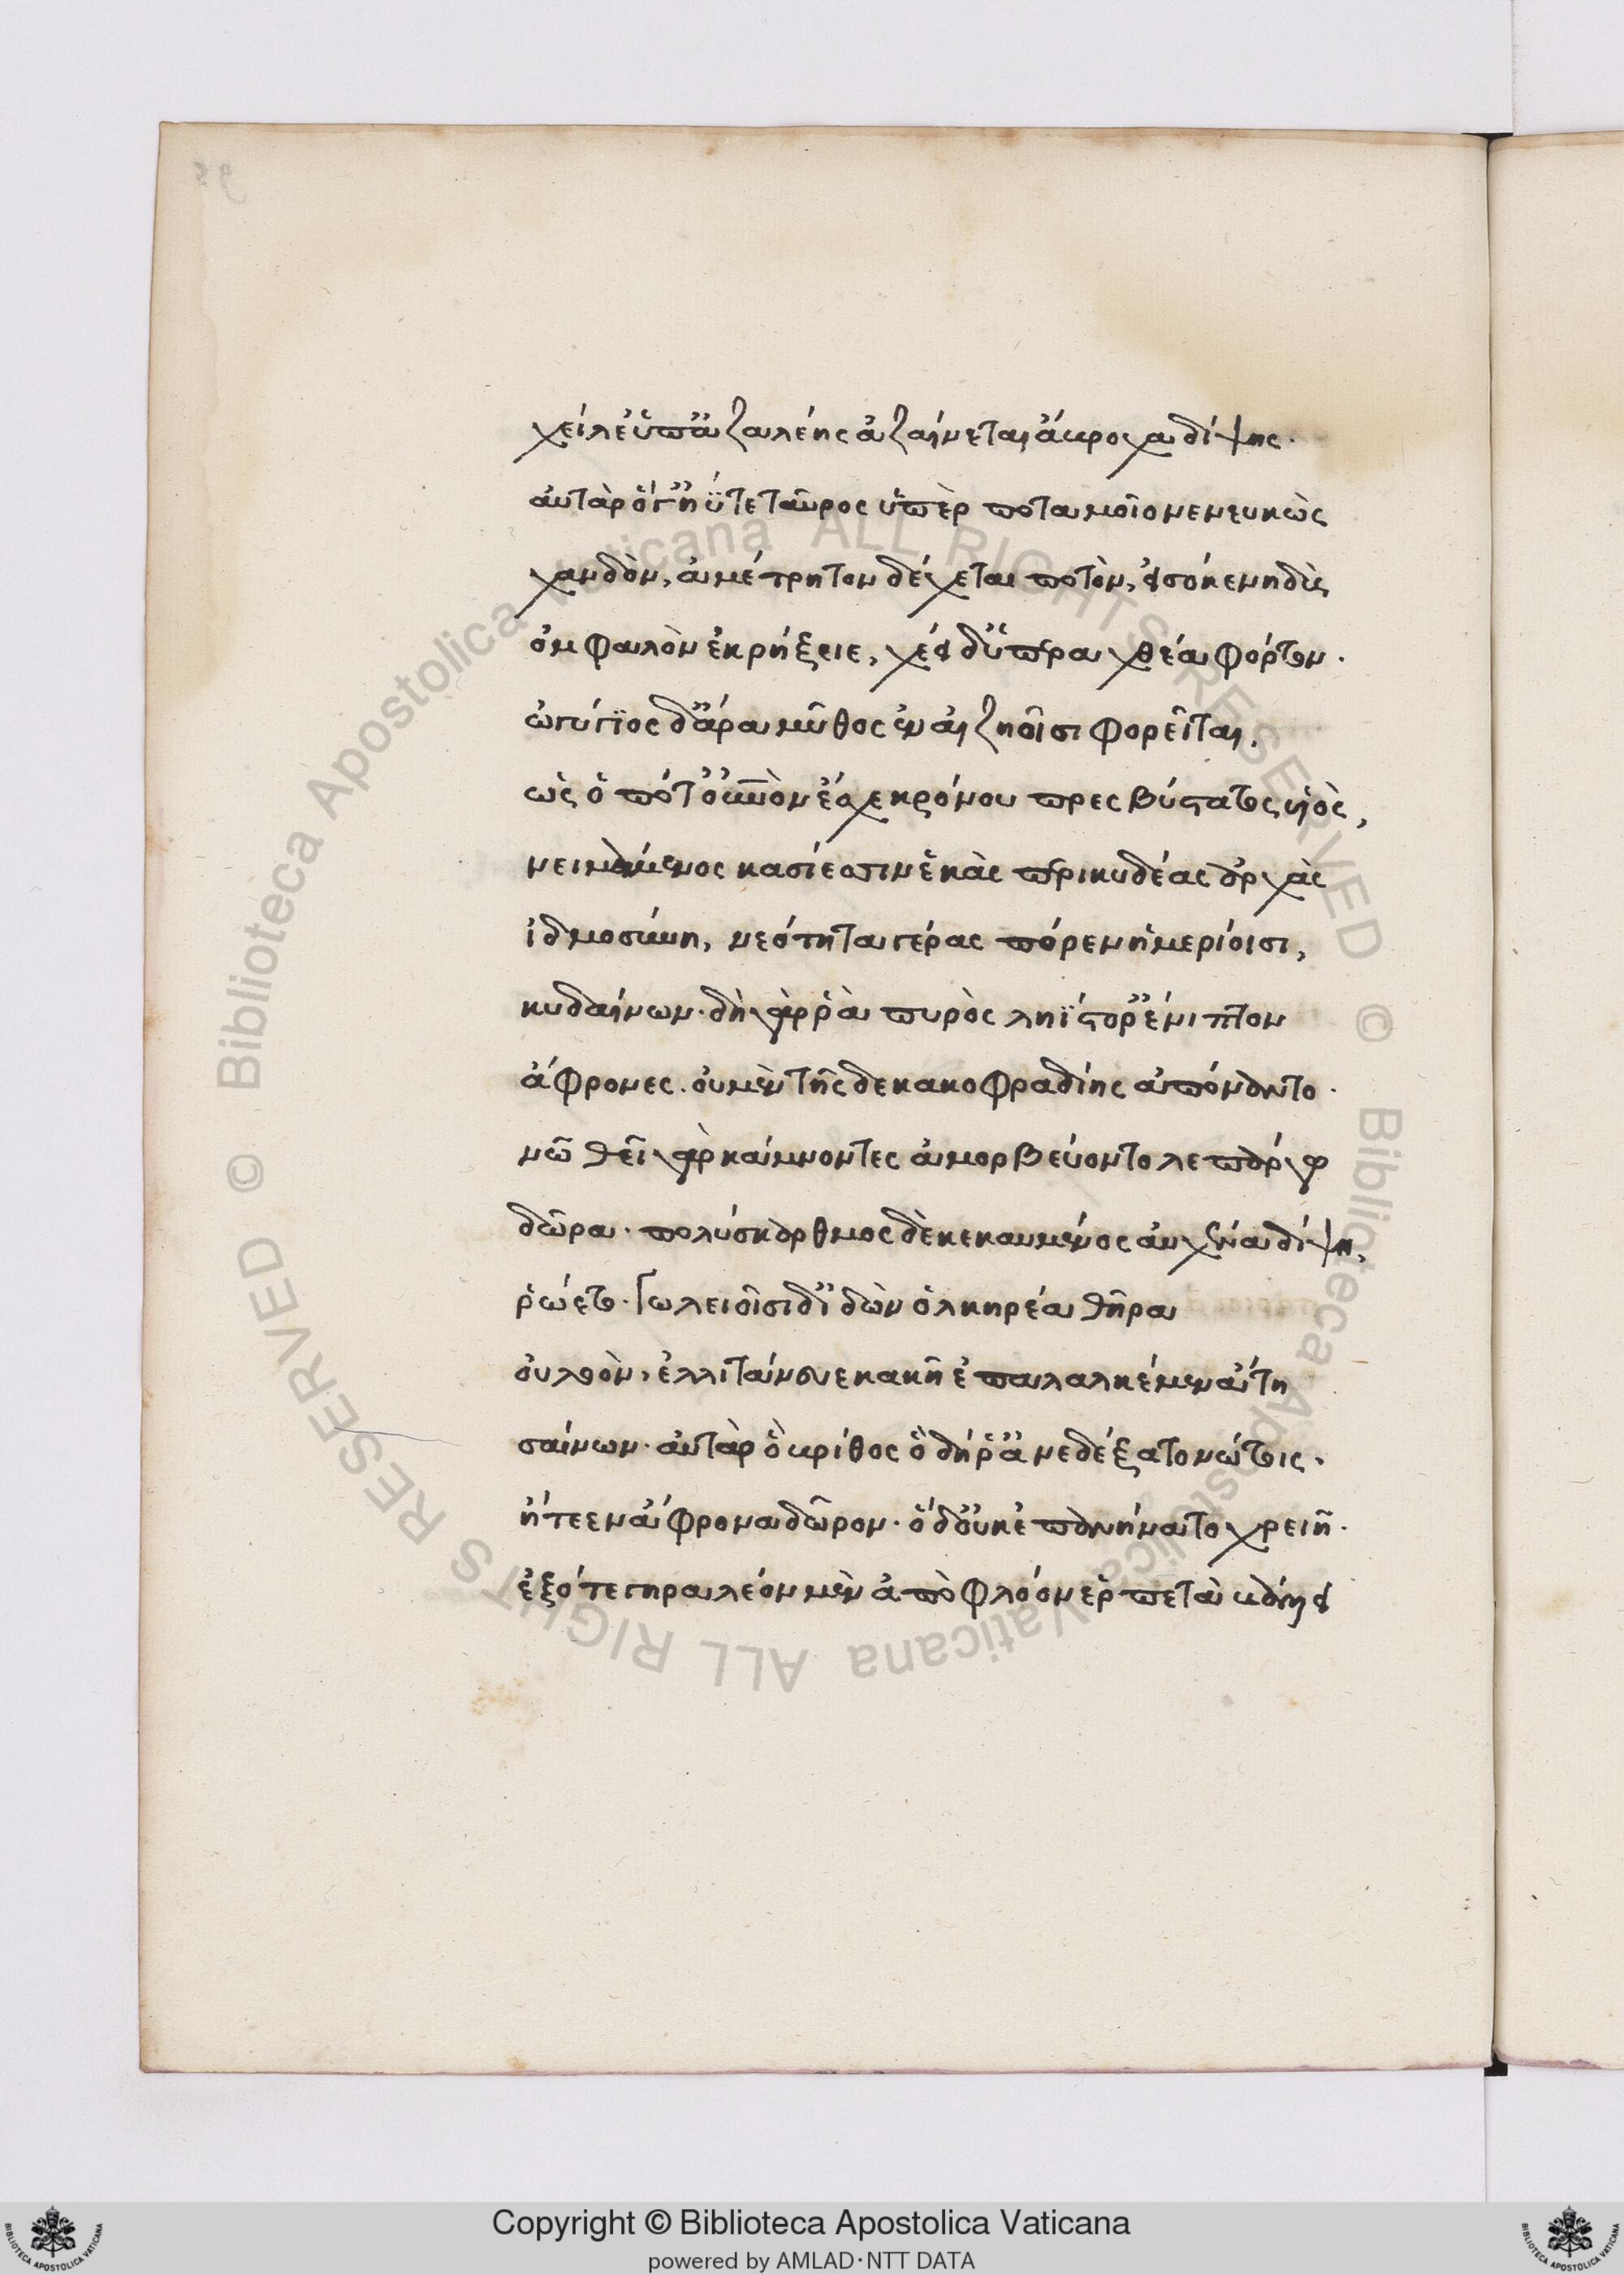 χείλε' ὑπ' ἀζαλέης αὐαίνεται ἄβροχα δίψης.
αὐτὰρ ὅγ' ἠΰτε ταῦρος ὑπὲρ ποταμοῖο νενευκὼς
χανδὸν, ἀμέτρητον δέχεται ποτὸν, εἰσόκε νηδὺς
ὀμφαλὸν ἐκρήξειε, χέει δ' ὑπεραχθέα φόρτον.
ὠγύγιος δ' ἄρα μῦθος ἐν αἰζηοῖσι φορεῖται.
ὡς ὁπότ' οὐρανὸν ἔσχε κρόνου πρεσβύτατος υἱὸς,
νειμάμενος κασίεσσιν ἑκὰς περικυδέας ἀρχὰς
ἰδμοσύνη, νεότητα γέρας πόρεν ἡμερίοισι,
κυδαίνων. δὴ γάρ ῥα πυρὸς ληΐστορ' ἔνιπτον
ἄφρονες. οὐ μὲν τῆς δε κακοφραδίης ἀπόναντο.
νωθεῖ γὰρ κάμνοντες ἀμορβεύοντο λεπάργῳ
δῶρα. πολύσκαρθμος δὲ κεκαυμένος αὐχένα δίψῃ,
ῥώετο. γωλειοῖσι δ' ἰδὼν ὁλκηρέα θῆρα
οὐλοὸν, ἐλλιτάνευε κακῇ ἐπαλαλκέμεν ἄτῃ
σαίνων. αὐτὰρ ὁ βρίθος ὃ δή ῥ' ἀνεδέξατο νώτοις.
ᾔτεεν ἄφρονα δῶρον. ὁ δ' οὐκ ἀπανήνατο χρειῆ.
ἐξότε γηραλέον μὲν ἀπὸ φλόον ἑρπετὰ βάλλει